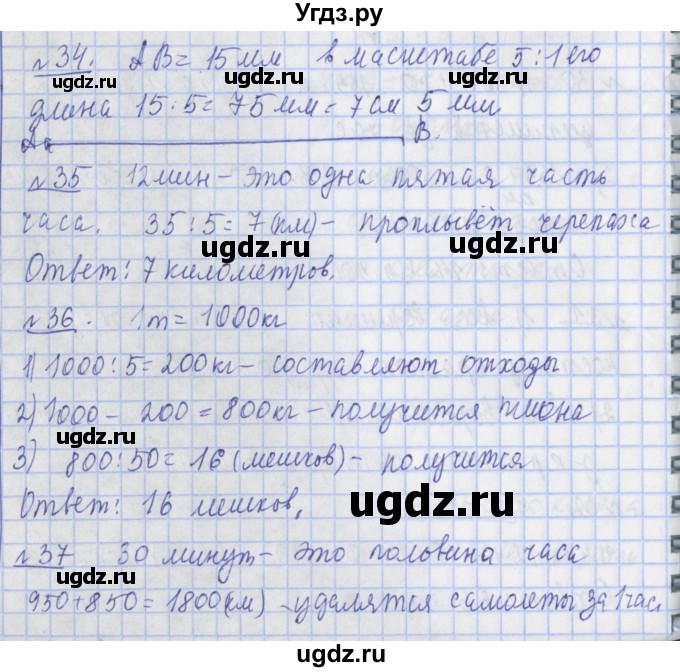 Угдз.ру
№34. AB = 15мм в масштабе 5:1 его
длина 15·5 = 75мм = 7см 5мм
A B.
№35 12мин – это одна пятая часть
часа. 35:5 = 7(км) – проплывёт черепаха
ugdz.ru ugdz.ru
Ответ: 7 километров.
ugdz.ru
№36. 1т = 1000кг
ugdz.ru
1) 1000:5 = 200кг – составляют отходы
2) 1000 – 200 = 800кг – получится пшона
ugdz.ru ugdz.ru
3) 800:50 = 16 (мешков) – получится
Ответ: 16 мешков.
ugdz.ru
№37 30 минут – это половина часа
ugdz.ru ugdz.ru
950+850 = 1800(км) – удалятся самолеты за 1час
ugdz.ru